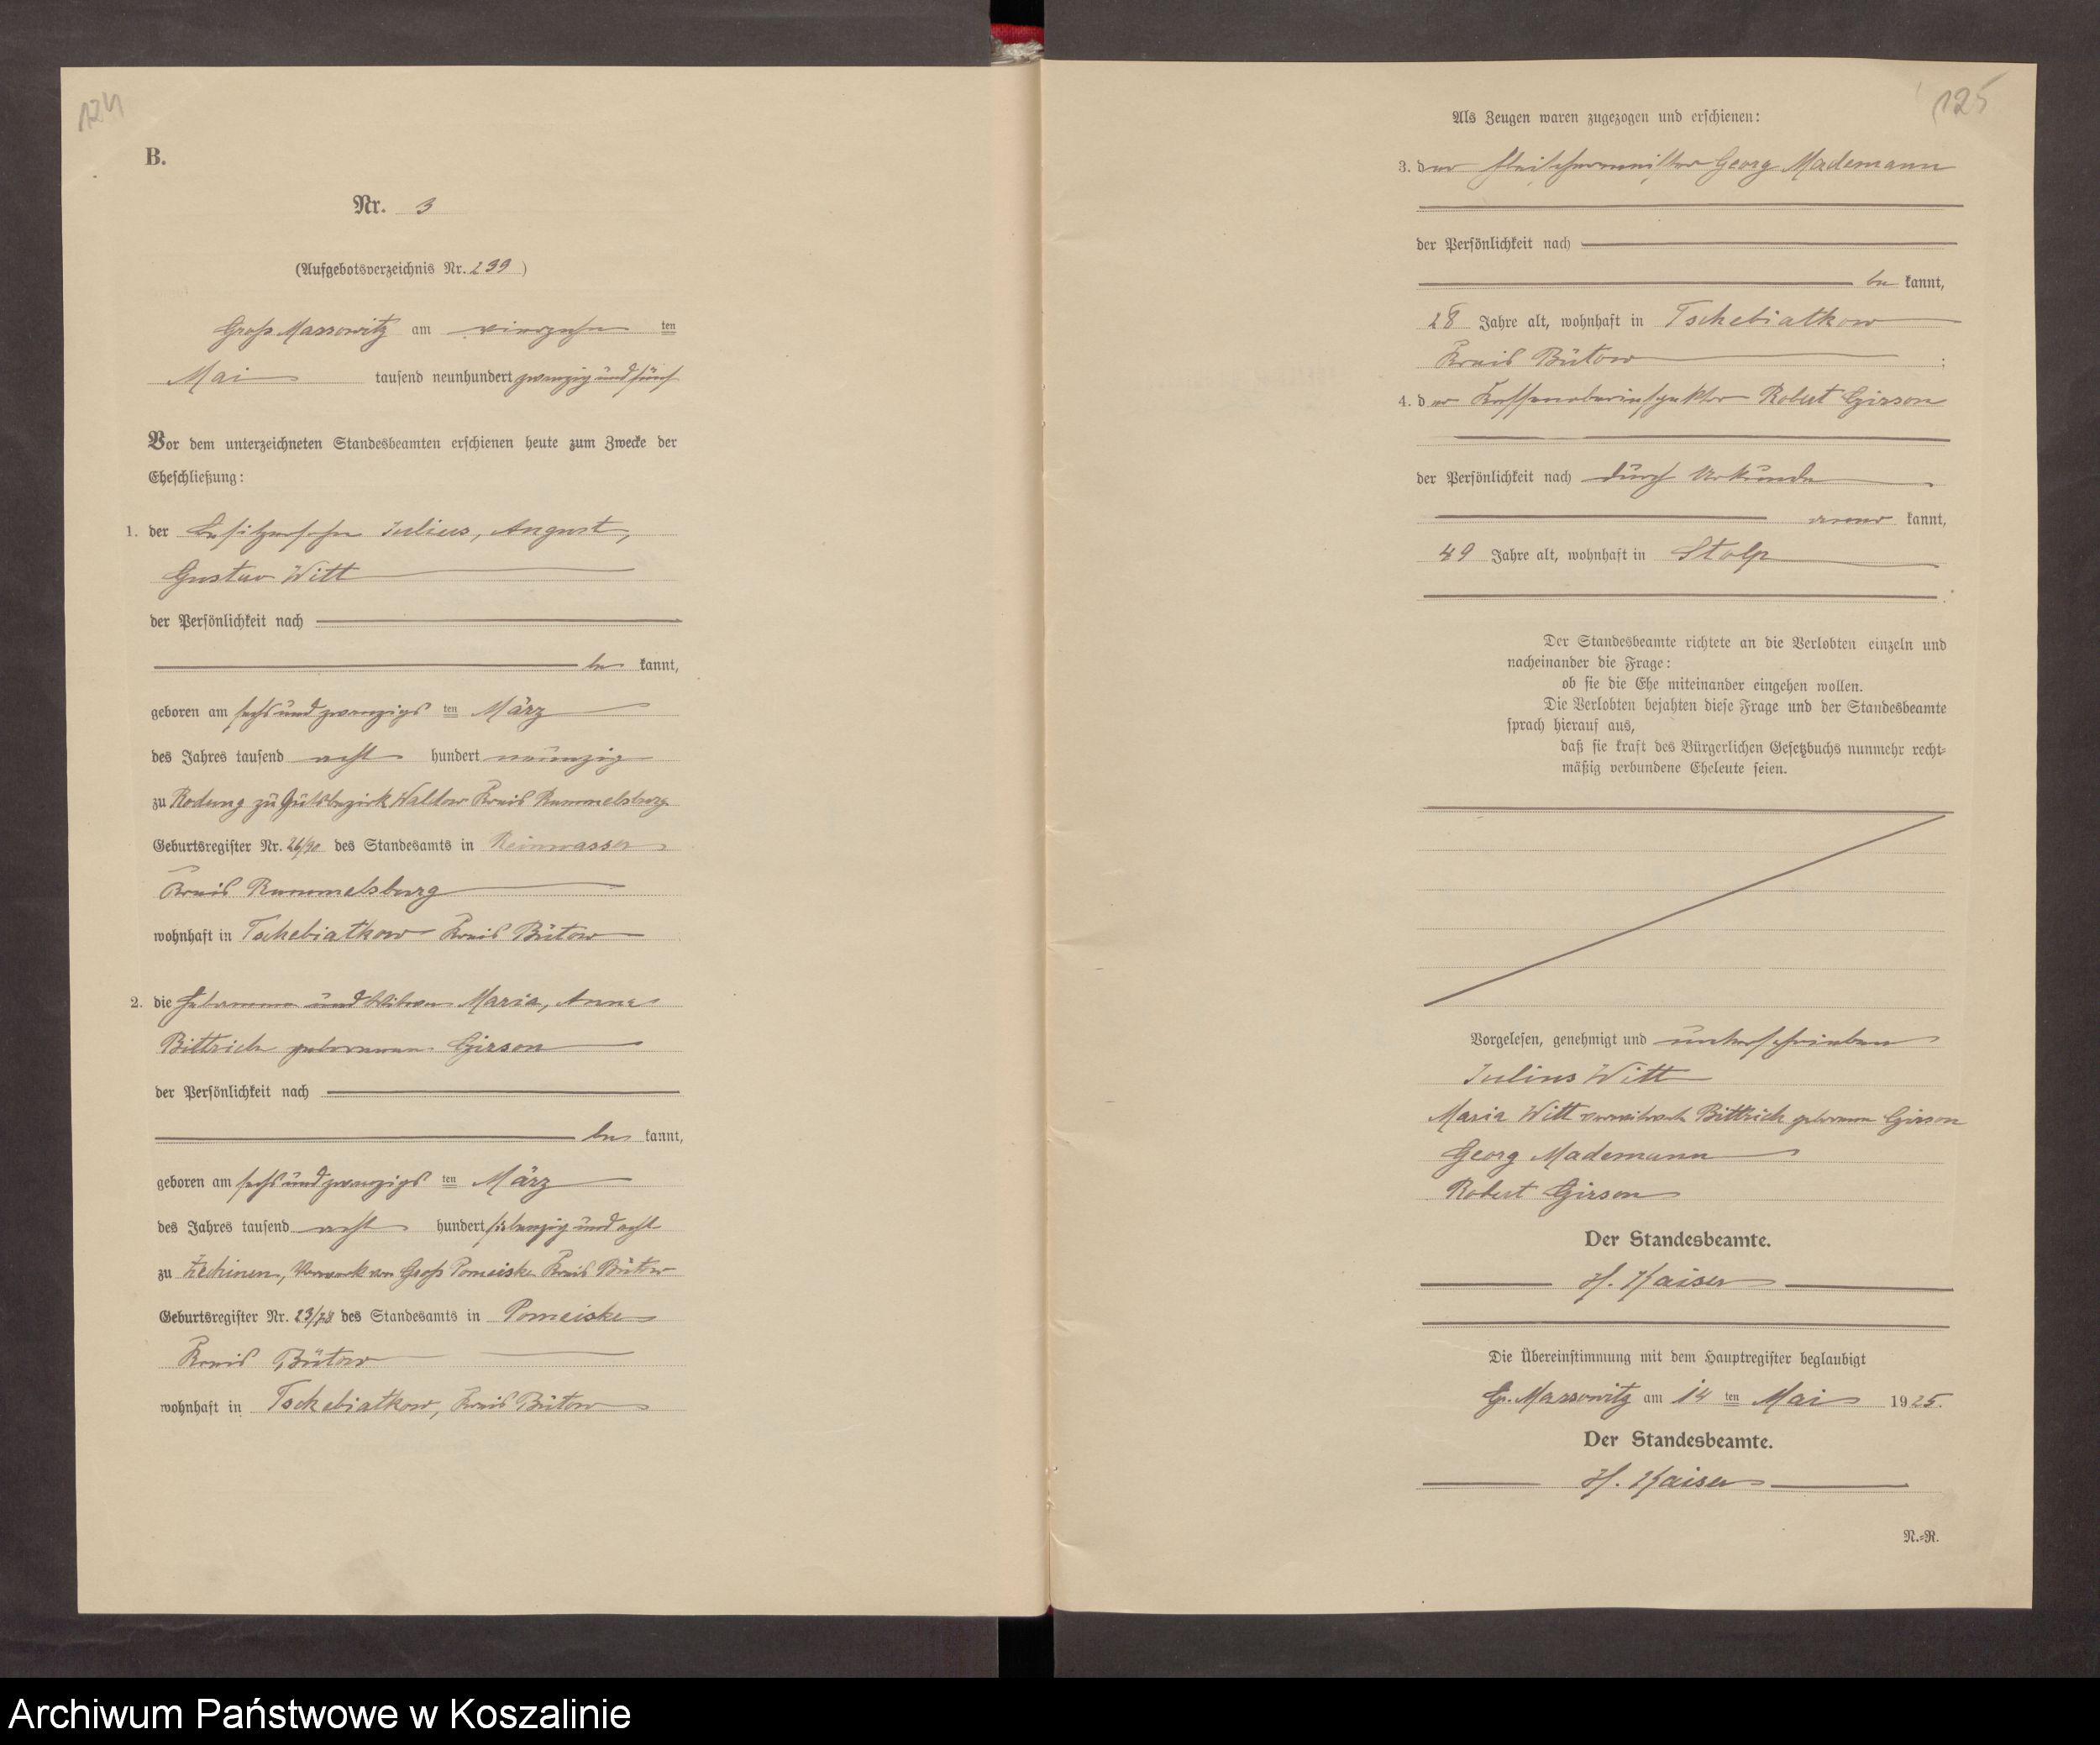 124
B.
Nr. 3
(Aufgebotsverzeichnis Nr. 239)
Groß Massowitz am vierzehn ten
Mai tausend neunhundert zwanzig und fünf
Vor dem unterzeichneten Standesbeamten erschienen heute zum Zwecke der
Eheschließung:
1. der Besitzersohn Julius, August,
Gustav Witt
der Persönlichkeit nach
be kannt,
geboren am sechsundzwanzigs ten März
des Jahres tausend acht hundert neunzig
zu Rodung zu Gutsbezirk Waldow Kreis Rummelsburg
Geburtsregister Nr. 26/90 des Standesamts in Reinwasser
Kreis Rummelsburg
wohnhaft in Tschebiatkow Kreis Bütow
2. die Hebamme und Witwe Maria, Anna
Bittrich geborenen Girson
der Persönlichkeit nach
be kannt,
geboren am sechsundzwanzigs ten März
des Jahres tausend acht hundert siebenzig und acht
zu Zechinen, Vorwerk von Groß Pomeiske Kreis Bütow
Geburtsregister Nr. 23/78 des Standesamts in Pomeiske
Kreis Bütow
wohnhaft in Tschebiatkow, Kreis Bütow
125
Als Zeugen waren zugezogen und erschienen:
3. der Fleischermeister Georg Mademann
der Persönlichkeit nach
be kannt,
28 Jahre alt, wohnhaft in Tschebiatkow
Kreis Bütow ;
4. der Kassenoberinspektor Robert Girson
der Persönlichkeit nach durch Urkunde
aner kannt,
49 Jahre alt, wohnhaft in Stolp
.
Der Standesbeamte richtete an die Verlobten einzeln und
nacheinander die Frage:
ob sie die Ehe miteinander eingehen wollen.
Die Verlobten bejahten diese Frage und der Standesbeamte
sprach hierauf aus,
daß sie kraft des Bürgerlichen Gesetzbuchs nunmehr recht-
mäßig verbundene Eheleute seien.
Vorgelesen, genehmigt und unterschrieben
Julius Witt
Maria Witt verwitwete Bittrich geborene Girson
Georg Mademann
Robert Girson
Der Standesbeamte.
H. Kaiser
Die Übereinstimmung mit dem Hauptregister beglaubigt
Gr. Massowitz am 14 ten Mai 1925.
Der Standesbeamte.
H. Kaiser
N.-R.
Archiwum Państwowe w Koszalinie